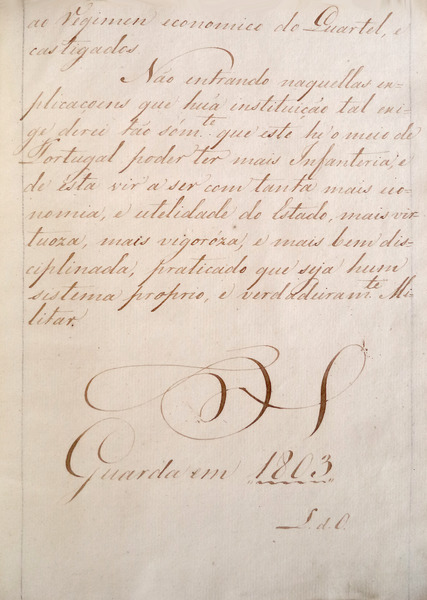 ao Regimen economico do Quartel, e
castigados
Não entrando naquellas ex-
plicaçoens que hũa instituição tal exi-
ge direi tão sóm.te que este hé o meio de
Portugal poder ter mais Infanteria, e
de ésta vir a ser com tanta mais eco-
nomia, e utelidade do Estado, mais vir-
tuoza, mais vigoróza, e mais bem dis-
ciplinada, praticado que seja hum
sistema proprio, e verdadeiram.te Mi-
litar.
Guarda em 1803
L. d. O.